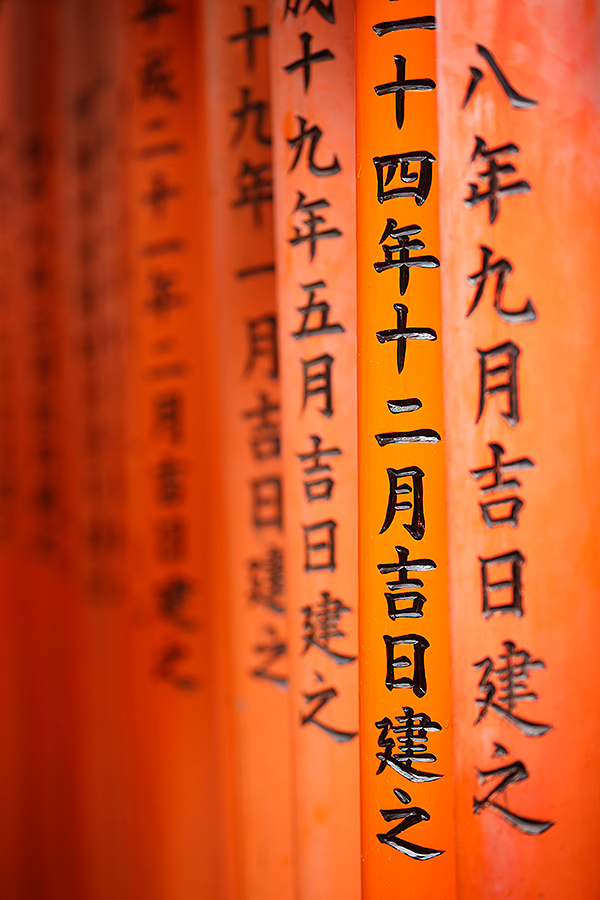 八年九月吉日建之
二十四年十二月吉日建之
成十九年五月吉日建之
十九年一月吉日建之
平成二十一年二月吉日建之